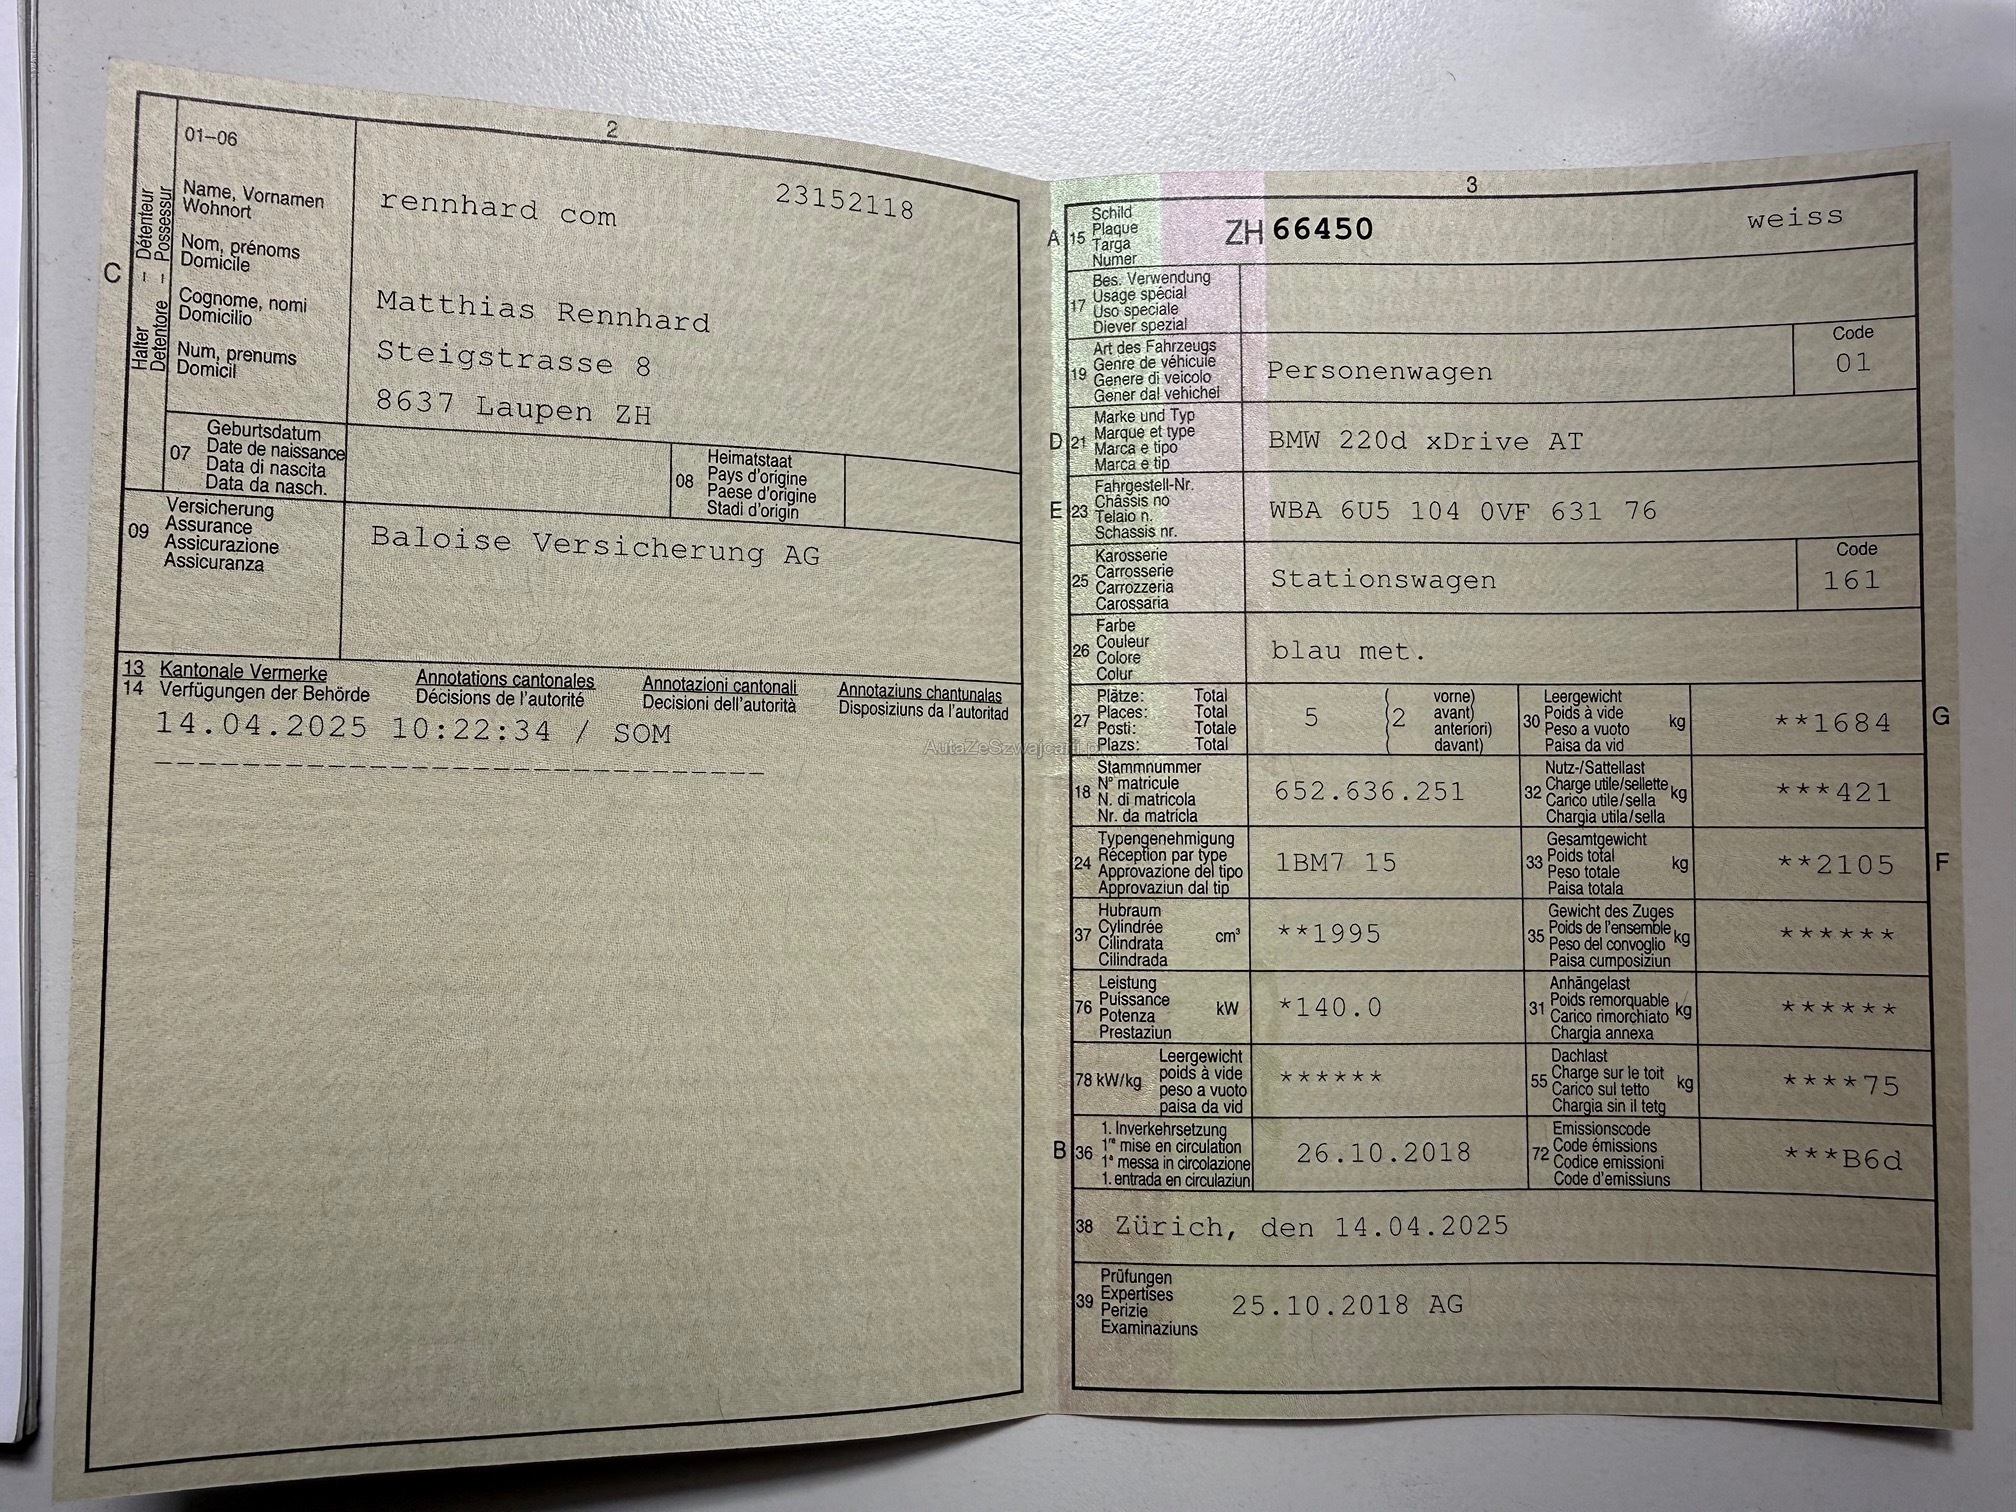 2
01–06
Halter – Détenteur –
Detentore – Possessur
C
Name, Vornamen
Wohnort
Nom, prénoms
Domicile
Cognome, nomi
Domicilio
Num, prenums
Domicil
rennhard com 23152118
Matthias Rennhard
Steigstrasse 8
8637 Laupen ZH
07
Geburtsdatum
Date de naissance
Data di nascita
Data da nasch.
08
Heimatstaat
Pays d'origine
Paese d'origine
Stadi d'origin
09
Versicherung
Assurance
Assicurazione
Assicuranza
Baloise Versicherung AG
13 Kantonale Vermerke Annotations cantonales Annotazioni cantonali Annotaziuns chantunalas
14 Verfügungen der Behörde Décisions de l'autorité Decisioni dell'autorità Disposiziuns da l'autoritad
14.04.2025 10:22:34 / SOM
-------------------------------
AutaZeSzwajcarii.pl
3
A 15
Schild
Plaque
Targa
Numer
ZH 66450 weiss
17
Bes. Verwendung
Usage spécial
Uso speciale
Diever spezial
19
Art des Fahrzeugs
Genre de véhicule
Genere di veicolo
Gener dal vehichel
Personenwagen
Code
01
D 21
Marke und Typ
Marque et type
Marca e tipo
Marca e tip
BMW 220d xDrive AT
E 23
Fahrgestell-Nr.
Châssis no
Telaio n.
Schassis nr.
WBA 6U5 104 0VF 631 76
25
Karosserie
Carrosserie
Carrozzeria
Carossaria
Stationswagen
Code
161
26
Farbe
Couleur
Colore
Colur
blau met.
27
Plätze: Total
Places: Total
Posti: Totale
Plazs: Total
5
(2
vorne)
avant)
anteriori)
davant)
30
Leergewicht
Poids à vide
Peso a vuoto
Paisa da vid
kg
**1684
G
18
Stammnummer
N° matricule
N. di matricola
Nr. da matricla
652.636.251
32
Nutz-/Sattellast
Charge utile/sellette
Carico utile/sella
Chargia utila/sella
kg
***421
24
Typengenehmigung
Réception par type
Approvazione del tipo
Approvaziun dal tip
1BM7 15
33
Gesamtgewicht
Poids total
Peso totale
Paisa totala
kg
**2105
F
37
Hubraum
Cylindrée
Cilindrata
Cilindrada
cm³
**1995
35
Gewicht des Zuges
Poids de l'ensemble
Peso del convoglio
Paisa cumposiziun
kg
******
76
Leistung
Puissance
Potenza
Prestaziun
kW
*140.0
31
Anhängelast
Poids remorquable
Carico rimorchiato
Chargia annexa
kg
******
78 kW/kg
Leergewicht
poids à vide
peso a vuoto
paisa da vid
******
55
Dachlast
Charge sur le toit
Carico sul tetto
Chargia sin il tetg
kg
****75
B 36
1. Inverkehrsetzung
1re mise en circulation
1a messa in circolazione
1. entrada en circulaziun
26.10.2018
72
Emissionscode
Code émissions
Codice emissioni
Code d'emissiuns
***B6d
38 Zürich, den 14.04.2025
39
Prüfungen
Expertises
Perizie
Examinaziuns
25.10.2018 AG